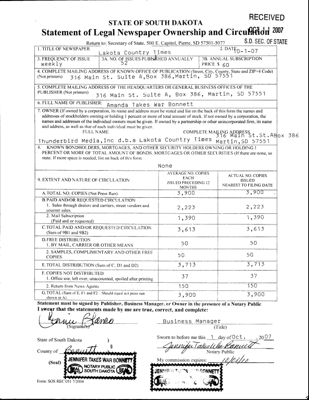 RECEIVED
STATE OF SOUTH DAKOTA
Statement of Legal Newspaper Ownership and Circulation 2007
Return to: Secretary of State, 500 E. Capitol, Pierre, SD 57501-5077
S.D. SEC. OF STATE
1. TITLE OF NEWSPAPER
Lakota Country Times
2. DATE
10-1-07
3. FREQUENCY OF ISSUE
weekly
3A. NO. OF ISSUES PUBLISHED ANNUALLY
52
3B. ANNUAL SUBSCRIPTION
PRICE $ 60
4. COMPLETE MAILING ADDRESS OF KNOWN OFFICE OF PUBLICATION (Street, City, County, State and ZIP+4 Code)
(Not printers) 316 Main St. Suite A, Box 386, Martin, SD 57551
5. COMPLETE MAILING ADDRESS OF THE HEADQUARTERS OR GENERAL BUSINESS OFFICES OF THE
PUBLISHER (Not printers) 316 Main St. Suite A, Box 386, Martin, SD 57551
6. FULL NAME OF PUBLISHER
Amanda Takes War Bonnett
7. OWNER (If owned by a corporation, its name and address must be stated and also on the back of this form the names and
addresses of stockholders owning or holding 1 percent or more of total amount of stock. If not owned by a corporation, the
names and addresses of the individual owners must be given. If owned by a partnership or other unincorporated firm, its name
and address, as well as that of each individual must be given.
FULL NAME
COMPLETE MAILING ADDRESS
Thunderbird Media, Inc d.b.a Lakota Country Times
316 Main St. St. A Box 386
Martin, SD 57551
8. KNOWN BONDHOLDERS, MORTGAGES, AND OTHER SECURITY HOLDERS OWNING OR HOLDING 1
PERCENT OR MORE OF TOTAL AMOUNT OF BONDS, MORTGAGES OR OTHER SECURITIES (If there are none, so
state. If more space is needed, list on back of this form)
None
9. EXTENT AND NATURE OF CIRCULATION
AVERAGE NO. COPIES
EACH
ISSUED PRECEDING 12
MONTHS
ACTUAL NO. COPIES
ISSUED
NEAREST TO FILING DATE
A. TOTAL NO. COPIES (Net Press Run) 3,900 3,900
B. PAID AND/OR REQUESTED CIRCULATION
1. Sales through dealers and carriers, street vendors and
counter sales.
2,223 2,223
2. Mail Subscription
(Paid and or requested)
1,390 1,390
C. TOTAL PAID AND/OR REQUESTED CIRCULATION
(Sum of 9B1 and 9B2)
3,613 3,613
D. FREE DISTRIBUTION
1. BY MAIL, CARRIER OR OTHER MEANS
50 50
2. SAMPLES, COMPLIMENTARY AND OTHER FREE
COPIES
50 50
E. TOTAL DISTRIBUTION (Sum of C, D1 and D2) 3,713 3,713
F. COPIES NOT DISTRIBUTED
1. Office use, left over, unaccounted, spoiled after printing
37 37
2. Return from News Agents 150 150
G. TOTAL (Sum of E, F1 and F2 - Should equal net press run
shown in A)
3,900 3,900
Statement must be signed by Publisher, Business Manager, or Owner in the presence of a Notary Public
I swear that the statements made by me are true, correct, and complete:
Connie
Business Manager
(Signature)
(Title)
State of South Dakota )
County of Bennett )
Sworn to before me this 1 day of Oct. 2007
Jennifer Takes War Bonnett
Notary Public
(Seal)
JENNIFER TAKES WAR BONNETT
NOTARY PUBLIC
SOUTH DAKOTA
My commission expires:
Form: SOS REC 051 7/2004